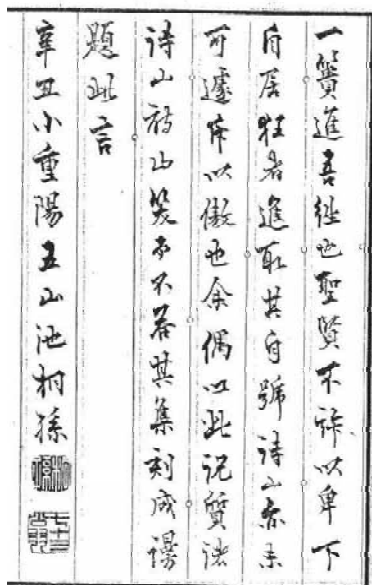 一簣進吾往也聖賢不許以卑下
自居狂者進取其自號詩山亦未
可遽斥以傲也余偶以此說質諸
詩山詩山笑而不答其集刻成謾
題此言
辛丑小重陽五山池桐孫